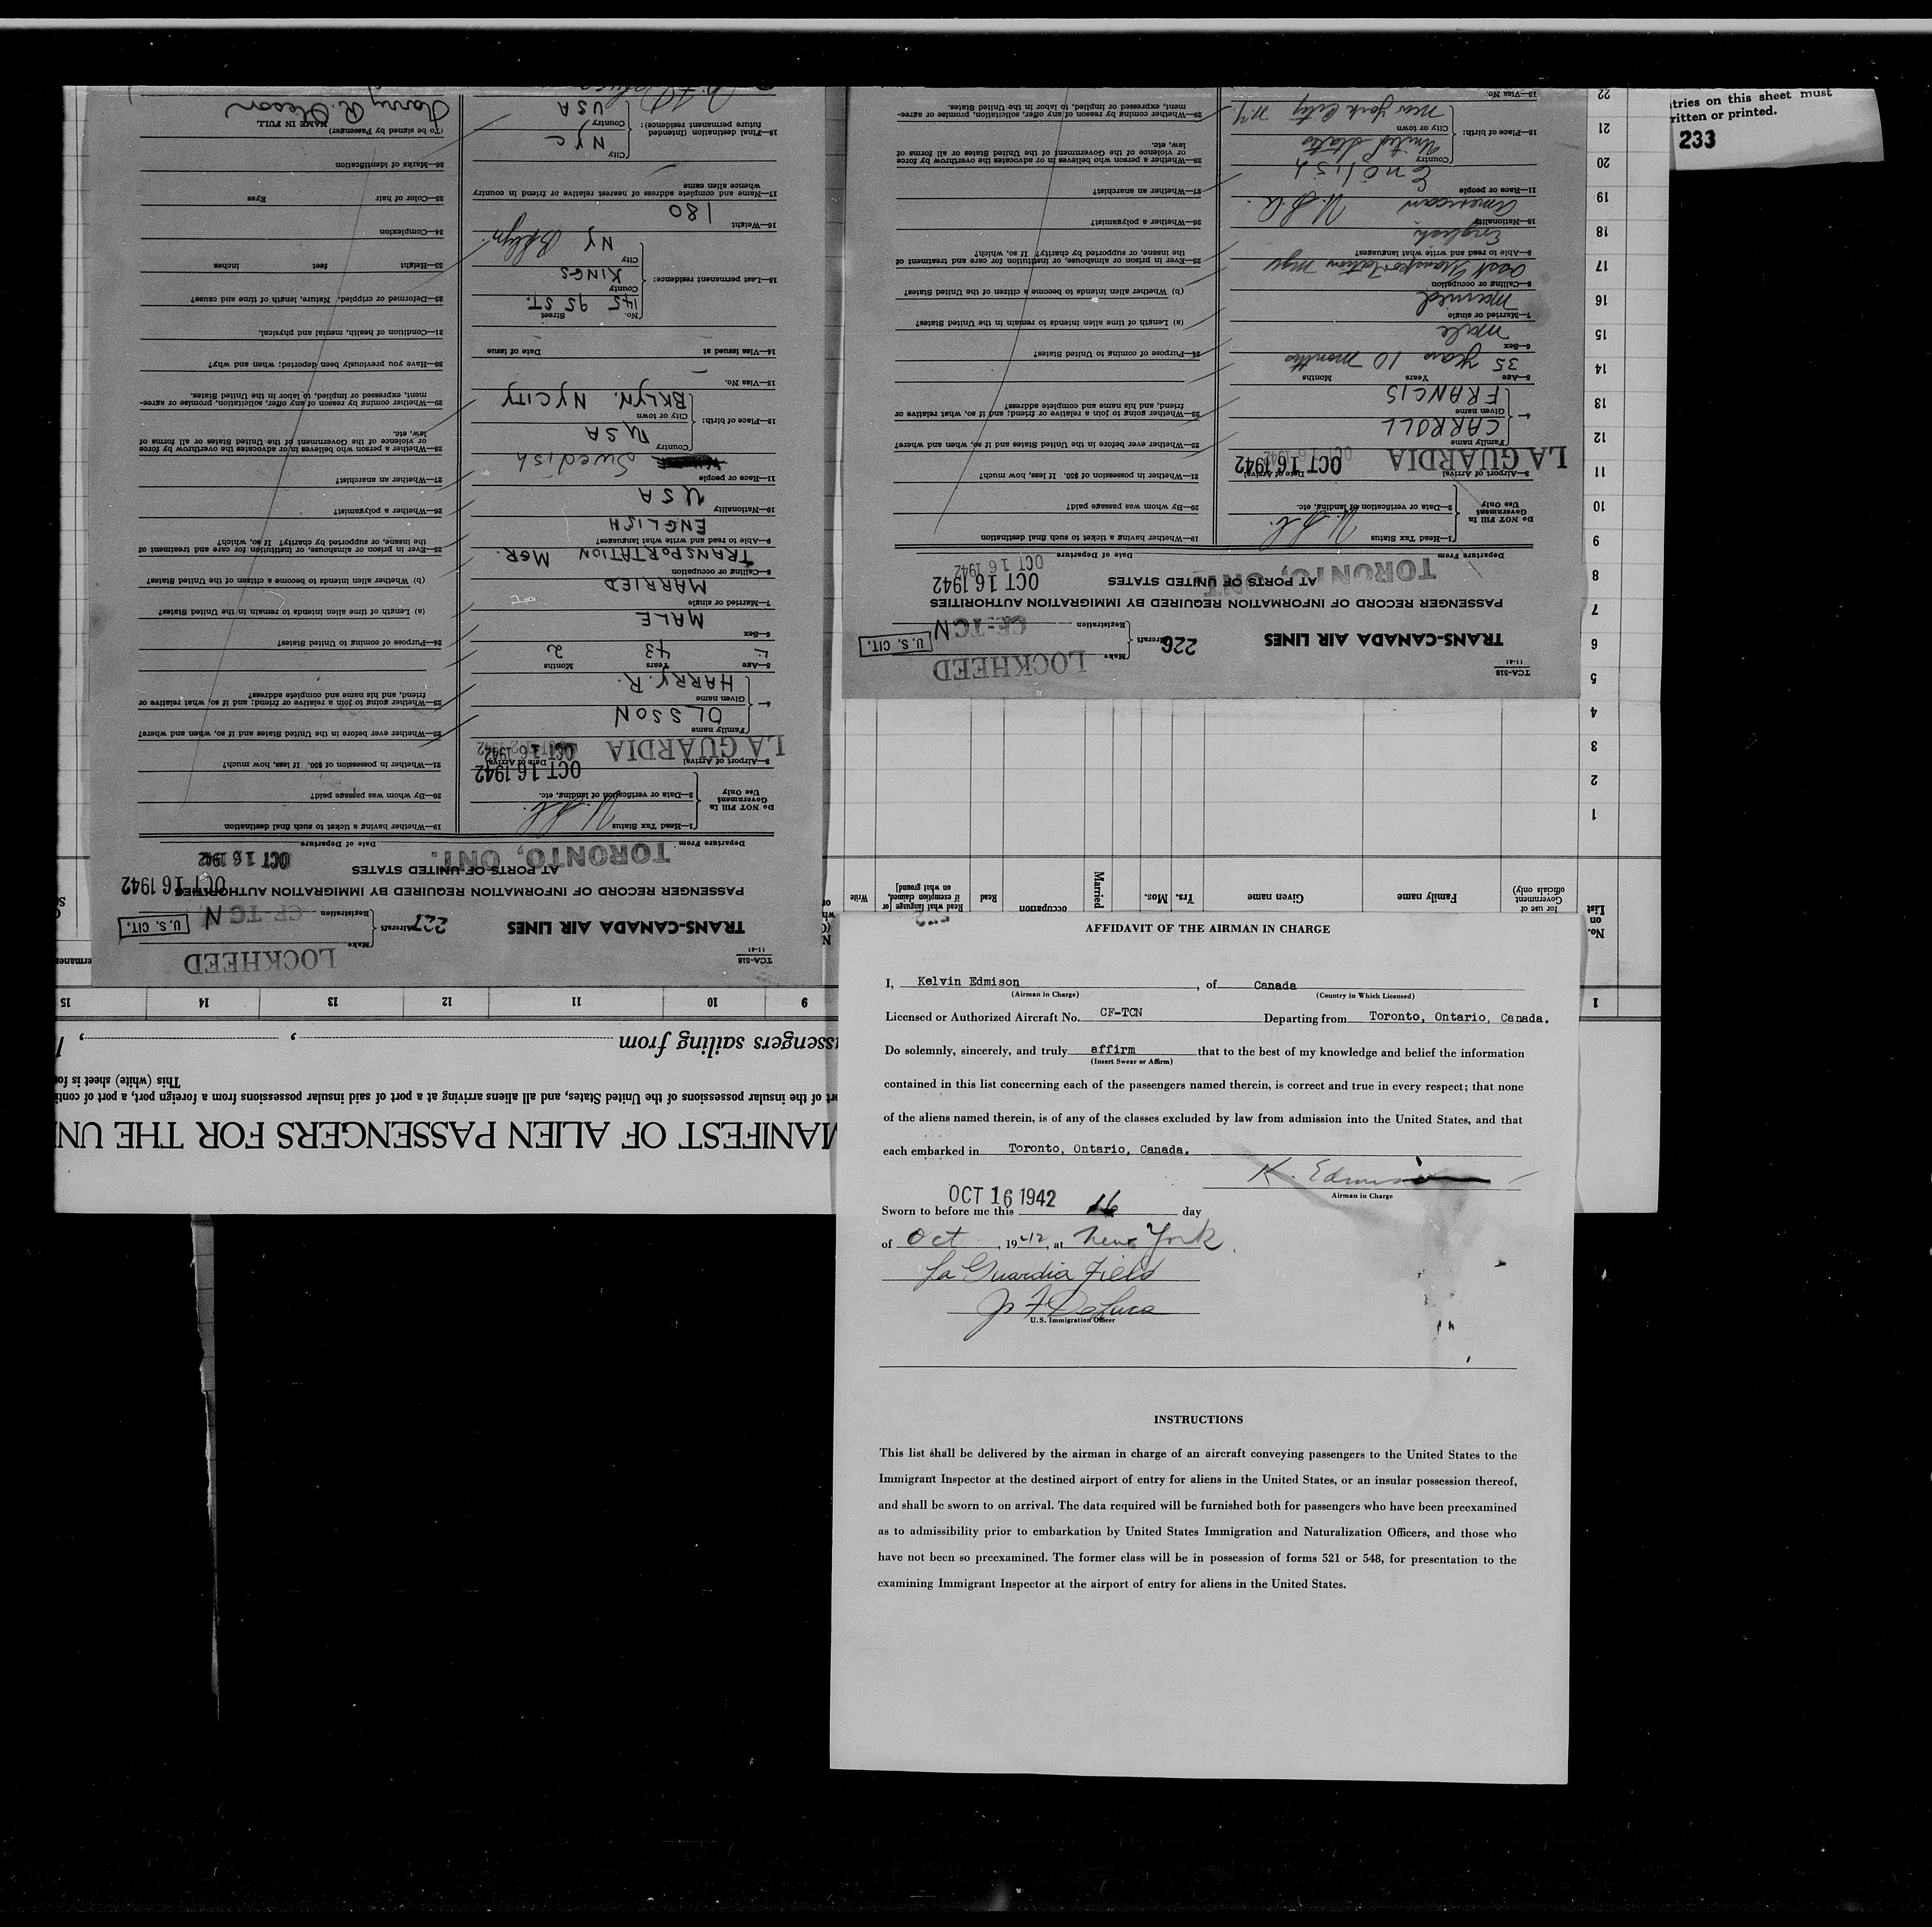 ntries on this sheet must
ritten or printed.
233
AFFIDAVIT OF THE AIRMAN IN CHARGE
I, Kelvin Edmison, of Canada
(Airman in Charge) (Country in Which Licensed)
Licensed or Authorized Aircraft No. CF-TCN Departing from Toronto, Ontario, Canada.
Do solemnly, sincerely, and truly affirm that to the best of my knowledge and belief the information
(Insert Swear or Affirm)
contained in this list concerning each of the passengers named therein, is correct and true in every respect; that none
of the aliens named therein, is of any of the classes excluded by law from admission into the United States, and that
each embarked in Toronto, Ontario, Canada.
K. Edmison
Airman in Charge
OCT 16 1942
Sworn to before me this 16 day
of Oct, 1942, at New York
La Guardia Field
U.S. Immigration Officer
INSTRUCTIONS
This list shall be delivered by the airman in charge of an aircraft conveying passengers to the United States to the
Immigrant Inspector at the destined airport of entry for aliens in the United States, or an insular possession thereof,
and shall be sworn to on arrival. The data required will be furnished both for passengers who have been preexamined
as to admissibility prior to embarkation by United States Immigration and Naturalization Officers, and those who
have not been so preexamined. The former class will be in possession of forms 521 or 548, for presentation to the
examining Immigrant Inspector at the airport of entry for aliens in the United States.
MANIFEST OF ALIEN PASSENGERS FOR THE UNI
rt of the insular possessions of the United States, and all aliens arriving at a port of said insular possessions from a foreign port, a part of conti
This (white) sheet is fo
ssengers sailing from
1 9 10 11 12 13 14 15
No. on List
for use of Government officials only)
Family name
Given name
Yrs. Mos.
Married
occupation
Read
Read what language [or if exemption claimed, on what ground]
Write
1
2
3
4
5
6
7
8
9
10
11
12
13
14
15
16
17
18
19
20
21
22
TCA-518
11-41
LOCKHEED
TRANS-CANADA AIR LINES 226 Aircraft Make
Registration CF-TCN U. S. CIT.
PASSENGER RECORD OF INFORMATION REQUIRED BY IMMIGRATION AUTHORITIES
AT PORTS OF UNITED STATES
OCT 16 1942
TORONTO, ONT
OCT 16 1942
Departure From Date of Departure
Do NOT Fill In Government Use Only
1—Head Tax Status
2—Data or verification of landing, etc.
3—Airport of Arrival Date of Arrival
LA GUARDIA OCT 16 1942
Family name
CARROLL
Given name
FRANCIS
5—Age Years Months
35 years 10 months
6—Sex
Male
7—Married or single
Married
8—Calling or occupation
Asst Transportation Mgr
9—Able to read and write what languages?
English
10—Nationality
American U.S.A.
11—Race or people
English
12—Place of birth: Country
United States
City or town
New York City N.Y.
13—Visa No.
19—Whether having a ticket to such final destination
20—By whom was passage paid?
21—Whether in possession of $50. If less, how much?
22—Whether ever before in the United States and if so, when and where?
23—Whether going to join a relative or friend; and if so, what relative or
friend, and his name and complete address?
24—Purpose of coming to United States?
(a) Length of time alien intends to remain in the United States?
(b) Whether alien intends to become a citizen of the United States?
25—Ever in prison or almshouse, or institution for care and treatment of
the insane, or supported by charity? If so, which?
26—Whether a polygamist?
27—Whether an anarchist?
28—Whether a person who believes in or advocates the overthrow by force
or violence of the Government of the United States or all forms of
law, etc.
29—Whether coming by reason of any offer, solicitation, promise or agree-
ment, expressed or implied, to labor in the United States.
TCA-518
11-41
LOCKHEED
TRANS-CANADA AIR LINES 227 Aircraft Make
Registration CF-TCN U. S. CIT.
PASSENGER RECORD OF INFORMATION REQUIRED BY IMMIGRATION AUTHORITIES
OCT 16 1942
AT PORTS OF UNITED STATES
TORONTO, ONT. OCT 16 1942
Departure From Date of Departure
Do NOT Fill In Government Use Only
1—Head Tax Status
2—Data or verification of landing, etc.
OCT 16 1942
3—Airport of Arrival Date of Arrival
LA GUARDIA OCT 16 1942
Family name
OLSSON
Given name
HARRY. R.
5—Age Years Months
43 2
6—Sex
MALE
7—Married or single
MARRIED
8—Calling or occupation
TRANSPORTATION MGR.
9—Able to read and write what languages?
ENGLISH
10—Nationality
USA
11—Race or people
Swedish
12—Place of birth: Country
USA
City or town
BKLYN. NYCITY
13—Visa No.
14—Visa issued at Date of issue
15—Last permanent residence: No. Street
145 95 ST.
County
KINGS
City
NY Bklyn.
16—Weight
180
17—Name and complete address of nearest relative or friend in country
whence alien came
18—Final destination (intended
future permanent residence):
City
NYC
Country
USA
19—Whether having a ticket to such final destination
20—By whom was passage paid?
21—Whether in possession of $50. If less, how much?
22—Whether ever before in the United States and if so, when and where?
23—Whether going to join a relative or friend; and if so, what relative or
friend, and his name and complete address?
24—Purpose of coming to United States?
(a) Length of time alien intends to remain in the United States?
(b) Whether alien intends to become a citizen of the United States?
25—Ever in prison or almshouse, or institution for care and treatment of
the insane, or supported by charity? If so, which?
26—Whether a polygamist?
27—Whether an anarchist?
28—Whether a person who believes in or advocates the overthrow by force
or violence of the Government of the United States or all forms of
law, etc.
29—Whether coming by reason of any offer, solicitation, promise or agree-
ment, expressed or implied, to labor in the United States.
30—Have you previously been deported; when and why?
31—Condition of health, mental and physical.
32—Deformed or crippled, Nature, length of time and cause?
33—Height feet inches
34—Complexion
35—Color of hair Eyes
36—Marks of identification
(To be signed by Passenger)
NAME IN FULL
Harry R. Olsson